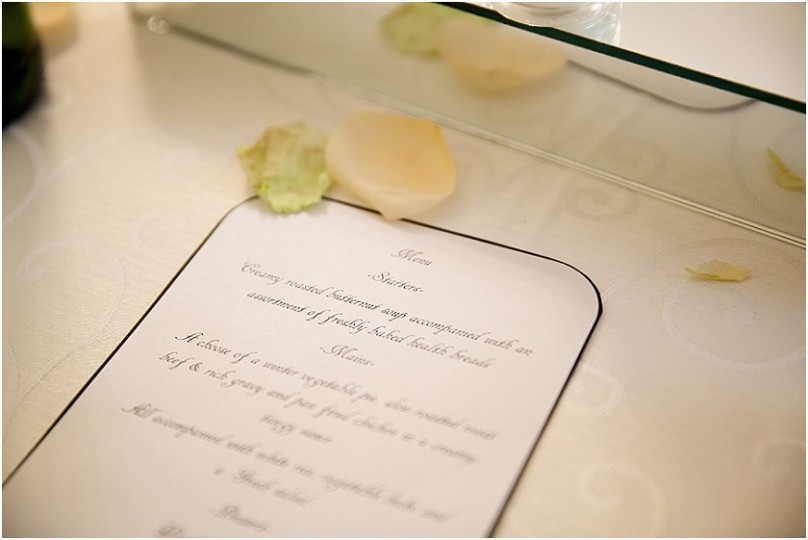 Menu
-Starters-
Creamy roasted butternut soup accompanied with an
assortment of freshly baked health breads
-Mains-
A choose of a winter vegetable pie, slow roasted roast
beef & rich gravy and pan fried chicken in a creamy
sauce
All accompanied with white rice, vegetable and
& Greek salad
-Dessert-